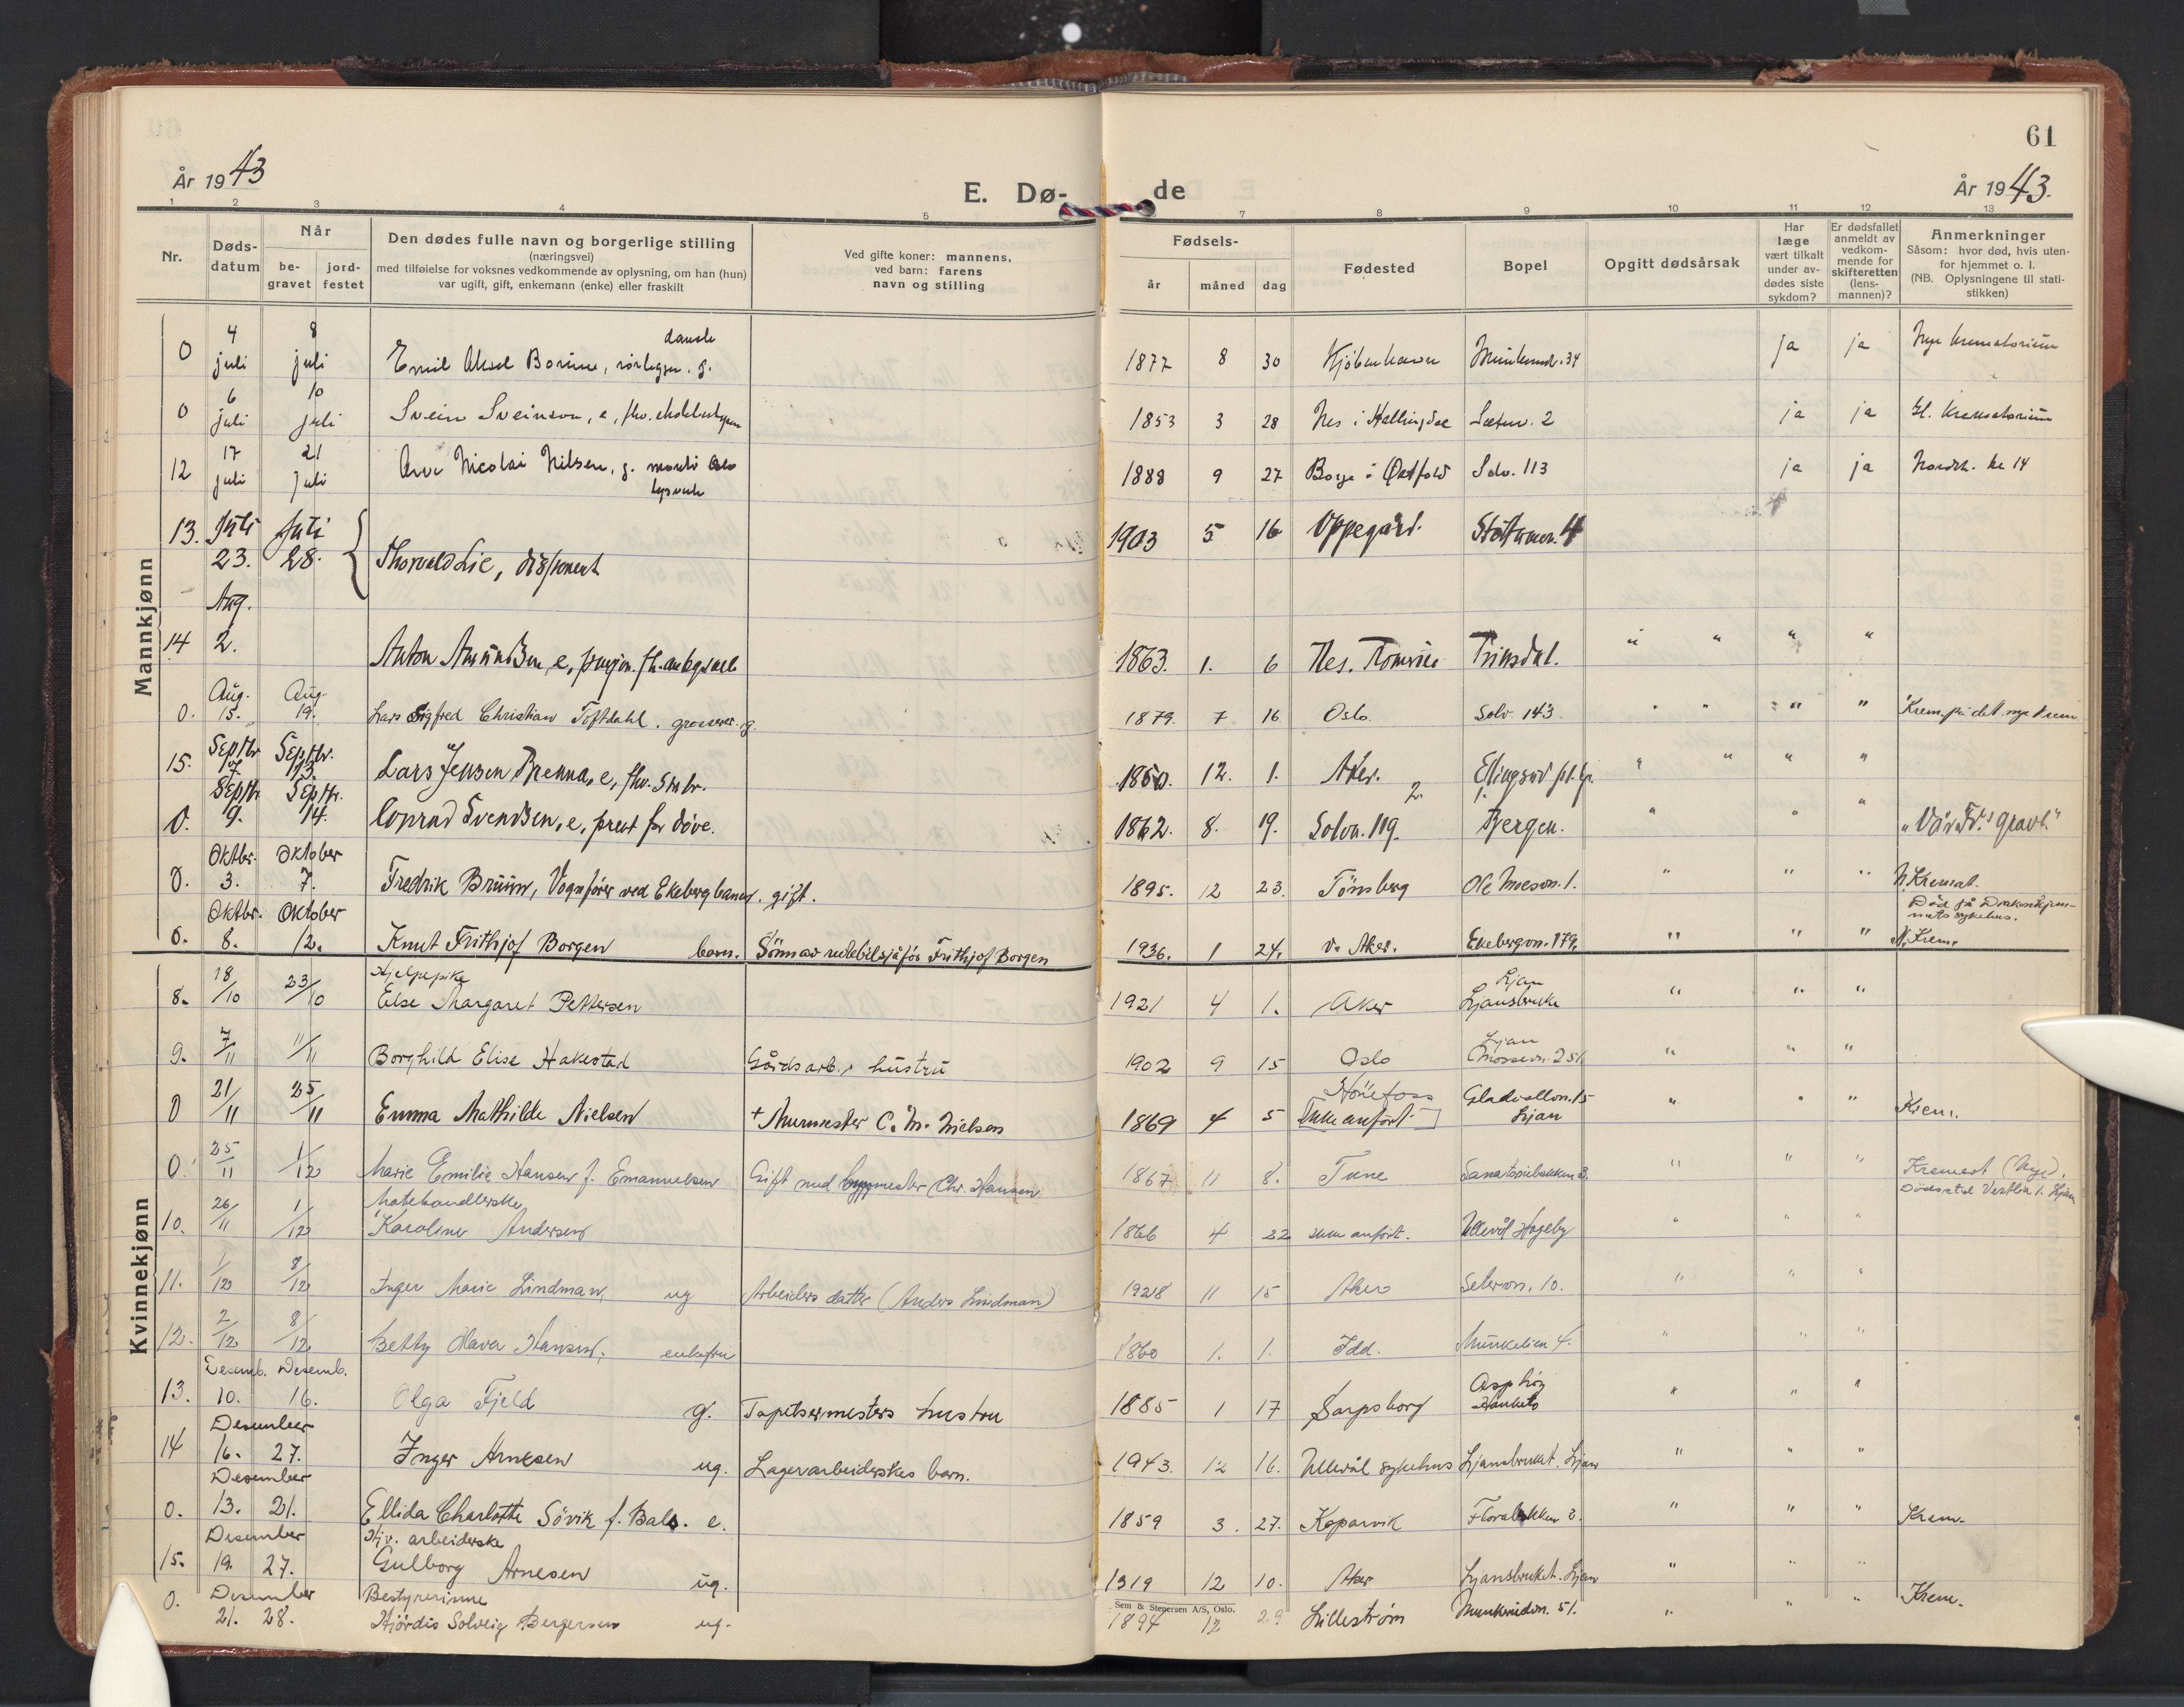 61
År 1943
E. Dø-
de
År 1943.
1 2 3 4 5 7 8 9 10 11 12 13
Nr.
Døds-
datum
Når
be-
gravet
jord-
festet
Den dødes fulle navn og borgerlige stilling
(næringsvei)
med tilføielse for voksnes vedkommende av oplysning, om han (hun)
var ugift, gift, enkemann (enke) eller fraskilt
Ved gifte koner: mannens,
ved barn: farens
navn og stilling
Fødsels-
år måned dag
Fødested
Bopel
Opgitt dødsårsak
Har
læge
vært tilkalt
under av-
dødes siste
sykdom?
Er dødsfallet
anmeldt av
vedkom-
mende for
skifteretten
(lens-
mannen)?
Anmerkninger
Såsom: hvor død, hvis uten-
for hjemmet o. l.
(NB. Oplysningene til stati-
stikken)
Mannkjønn
0 4 juli 8 juli Emil Aksel, g. dansk 1877 8 30 Kjøbenhavn 34 ja ja Nye krematorium
0 6 juli 10 juli Svein Sveinson, e, fhv. 1853 3 28 Nes i Hallingdal Sæterv. 2 ja ja Gl. Krematorium
12 17 juli 21 juli Nicolai Nilsen, g. Oslo lysverk 1888 9 27 Borge i Østfold Solv. 113 ja ja Nordst. 14
13. Juli 23. Juli 28. Thorvald Lie, disponent 1903 5 16 Oppegård. 4
14 Aug. 2. Anton Amundsen, e, 1863. 1. 6 Nes. Romerike " " " "
0. Aug. 15. Aug. 19. Lars Sigfred Christian Toftdahl. grosserer. g. 1879. 7 16 Oslo. Solv 143. " " " " Krem. på det nye krem
15. Septbr. 7. Septbr. 13. Lars Jensen Brenna, e, fhv. smbr. 1850. 12. 1. Aker. " " " "
0. Septbr. 9. Septbr. 14. Conrad Svendsen, e, prest for døve. 1862. 8. 19. 2. Solvn. 119. 1. Bergen. " " " "Vår Fr.s gravl."
0. Oktbr. 3. Oktober 7. Fredrik Bruun, Vognfører ved Ekebergbanen. gift. 1895. 12 23. Tönsberg Ole Moesv. 1. " " " N. Kremat.
Död på Diakonhjem-
mets sykehus.
0. Oktbr. 8. Oktober 12. Knut Frithjof Borgen barn. Sönn av rutebilsjåför Frithjof Borgen 1936. 1 24. v. Aker. Ekebergvn. 179. " " " N. Krem.
Kvinnekjønn
8. 18/10 23/10 Hjelpepike
Else Margaret Pettersen 1921 4 1. Aker Ljan
Ljansbruket " " "
9. 7/11 11/11 Borghild Elise Hakestad Gårdsarb. hustru 1902 9 15 Oslo Ljan
Mossevn. 251 " " "
0 21/11 25/11 Emma Mathilde Nielsen + Murmester C. M. Nielsen 1869 4 5 Hönefoss
[Ikke anfört] Gladvollvn. 15
Ljan " " " Krem.
0. 25/11 1/12 Marie Emilie Hansen f. Emanuelsen Gift med byggmester Chr. Hansen 1867 11 8. Tune Sanatoriebakken 3. " " " Kremert (Nye).
Dödssted Vestlia 1. Ljan
10. 26/11 1/12 Matehandlerske
Karoline Andersen 1866 4 22 ikke anfört. Ullevål Hageby " " "
11. 1/12 8/12 Inger Marie Lindman, ug Arbeiders datter (Anders Lindman) 1928 11 15 Aker Setervn. 10. " " "
12. 2/12 8/12 Betty Olava Hansen, enkefru 1860 1. 1. Idd. Munkelien 4. " " "
13. Desemb. 10. Desemb. 16. Olga Fjeld g. Tapetsermesters hustru 1885 1 17 Sarpsborg Hauketo " " "
14 Desember 16. 27. Inger Arnesen ug. Lagerarbeiderskes barn. 1943. 12 16. Ullevål sykehus Ljansbruket. Ljan " " "
0. Desember 13. 21. Ellida Charlotte Sövik f. e. 1859 3. 27. Kopervik Florabakken 3. " " " Krem.
15. Desember 19. 27. arbeiderske
Gulborg Arnesen ug. 1919 12 10. Aker Ljansbruket. Ljan " " "
Sem & Stenersen A/S, Oslo.
0. Desember 21. 28. Bestyrerinne
Hjördis Solveig Bergersen ug. 1894 12 29 Lilleström Munkerudvn. 51. " " " Krem.